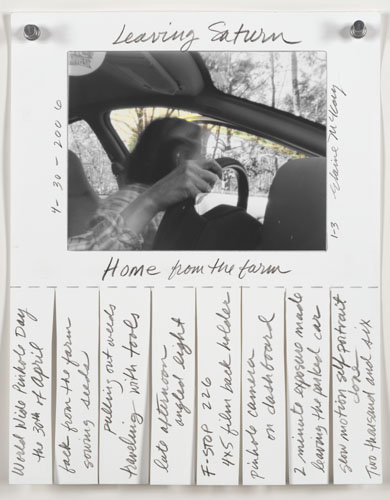 Leaving Saturn
4-30-2006
1-3 Elaine McKay
Home from the farm
World Wide Pinhole Day
the 30th of April
back from the farm
sowing seeds
pulling out weeds
traveling with tools
late afternoon
angled light
F-STOP 226
4x5 film back holder
pinhole camera
on dashboard
2 minute exposure made
leaving the parked car
slow motion self portrait
done
two thousand and six